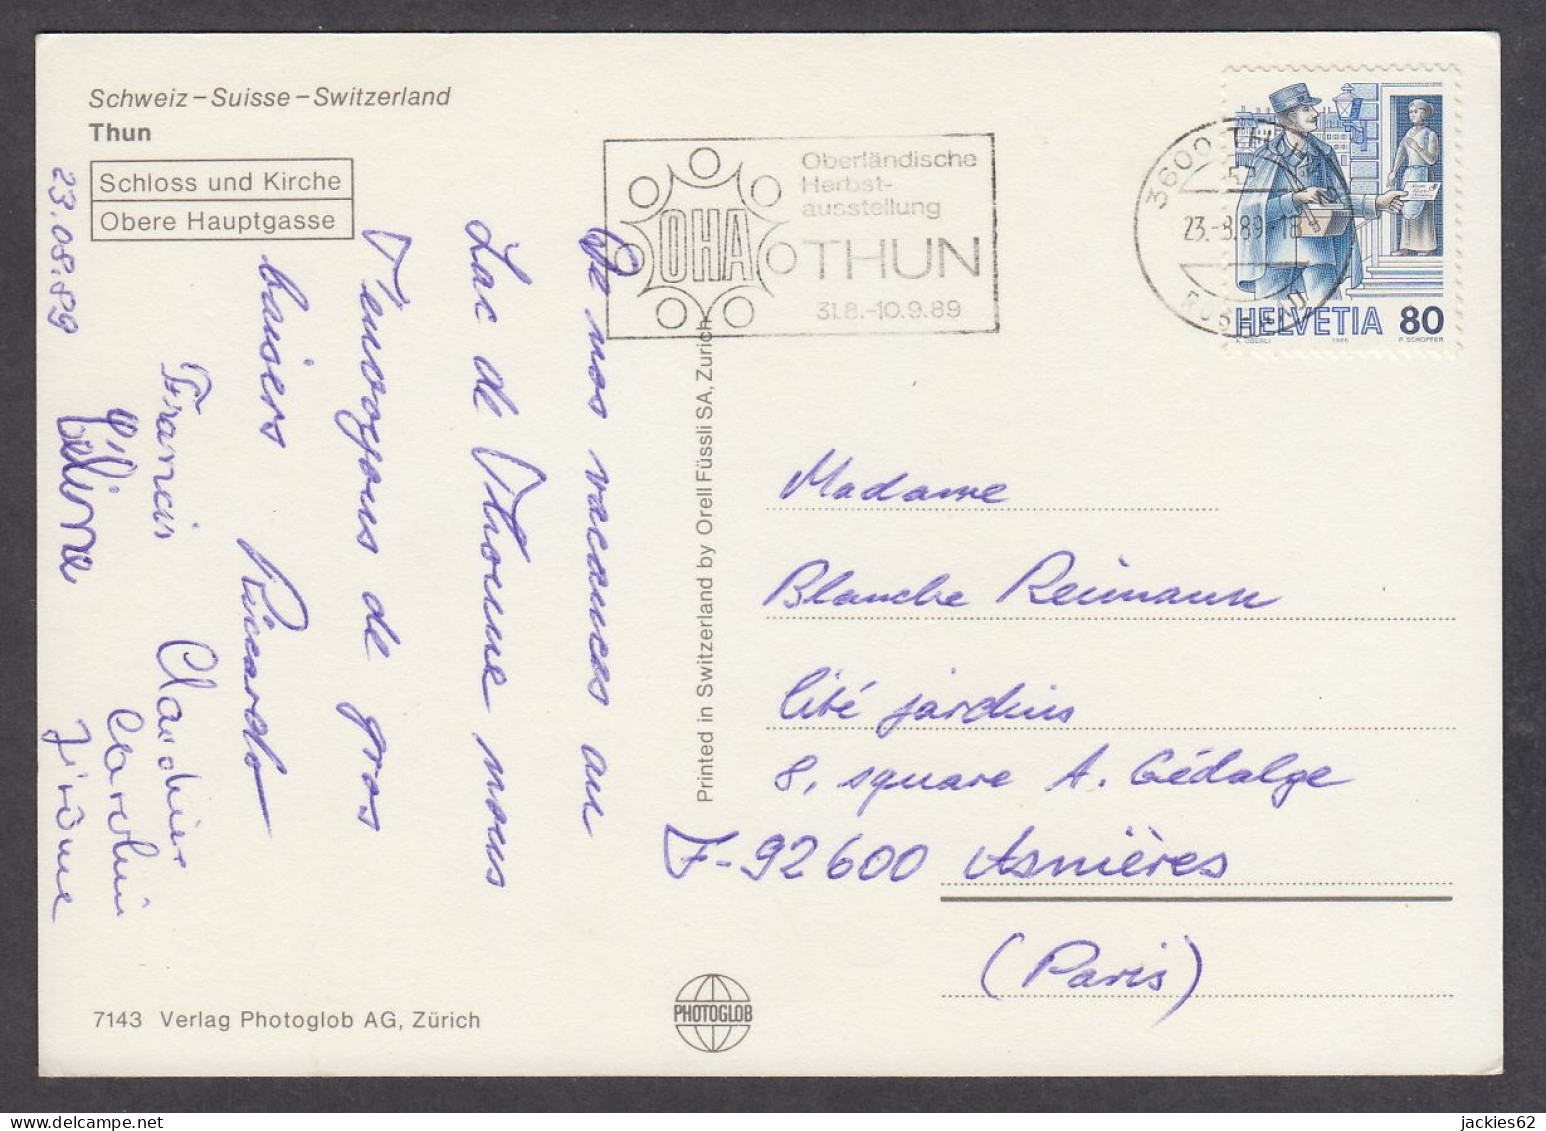 Schweiz – Suisse – Switzerland
Thun
Schloss und Kirche
Obere Hauptgasse
23.08.89
De nos vacances au
Lac de Thoune nous
T'envoyons de gros
baisers Riccardo
Francis
Céline
Jérôme
OHA
Oberländische
Herbst-
ausstellung
THUN
31.8.-10.9.89
3600 THUN
23.-8.89.-18
HELVETIA 80
K. OBERLI 1986 P. SCHOPFER
Printed in Switzerland by Orell Füssli SA, Zurich
Madame
Blanche Reimann
Cité jardins
8, square A. Gédalge
F-92600 Asnières
(Paris)
7143 Verlag Photoglob AG, Zürich
PHOTOGLOB
jackies62